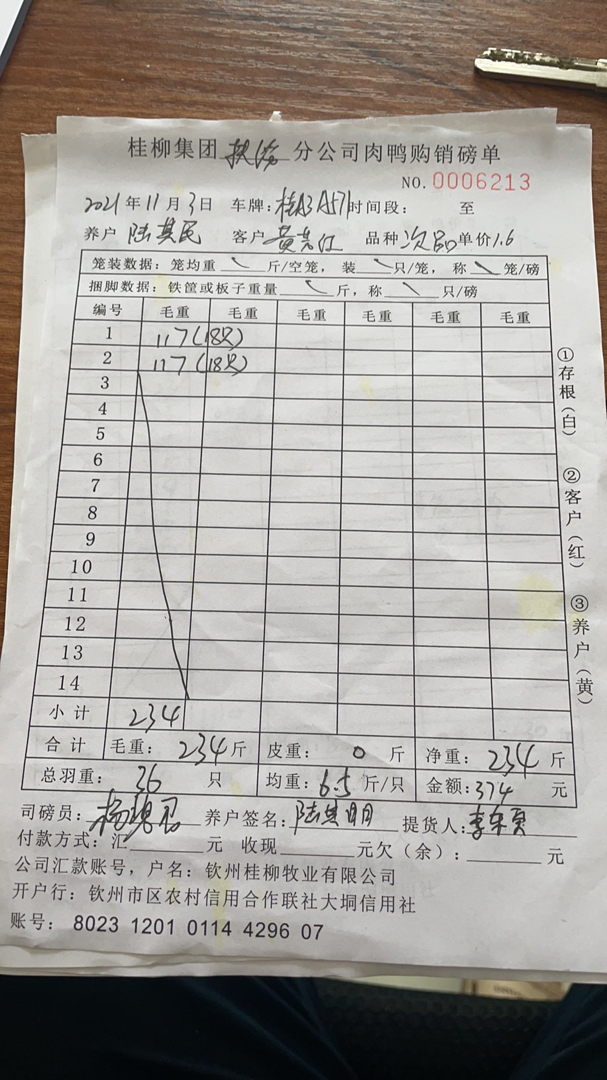 桂柳集团 分公司肉鸭购销磅单
NO. 0006213
2021年11月3日 车牌:桂A3A571 时间段: 至
养户 陆其民 客户 黄克红 品种 次品 单价1.6
笼装数据: 笼均重 斤/空笼, 装 只/笼, 称 笼/磅
捆脚数据: 铁筐或板子重量 斤, 称 只/磅
编号 毛重 毛重 毛重 毛重 毛重 毛重
1 117(18只)
2 117(18只)
3
4
5
6
7
8
9
10
11
12
13
14
小计 234
合计 毛重: 234斤 皮重: 0 斤 净重: 234 斤
总羽重: 36 只 均重: 6.5 斤/只 金额: 374 元
司磅员: 养户签名: 提货人:
付款方式: 汇 元 收现 元欠(余): 元
公司汇款账号, 户名: 钦州桂柳牧业有限公司
开户行: 钦州市区农村信用合作联社大垌信用社
账号: 8023 1201 0114 4296 07
①存根(白)
②客户(红)
③养户(黄)